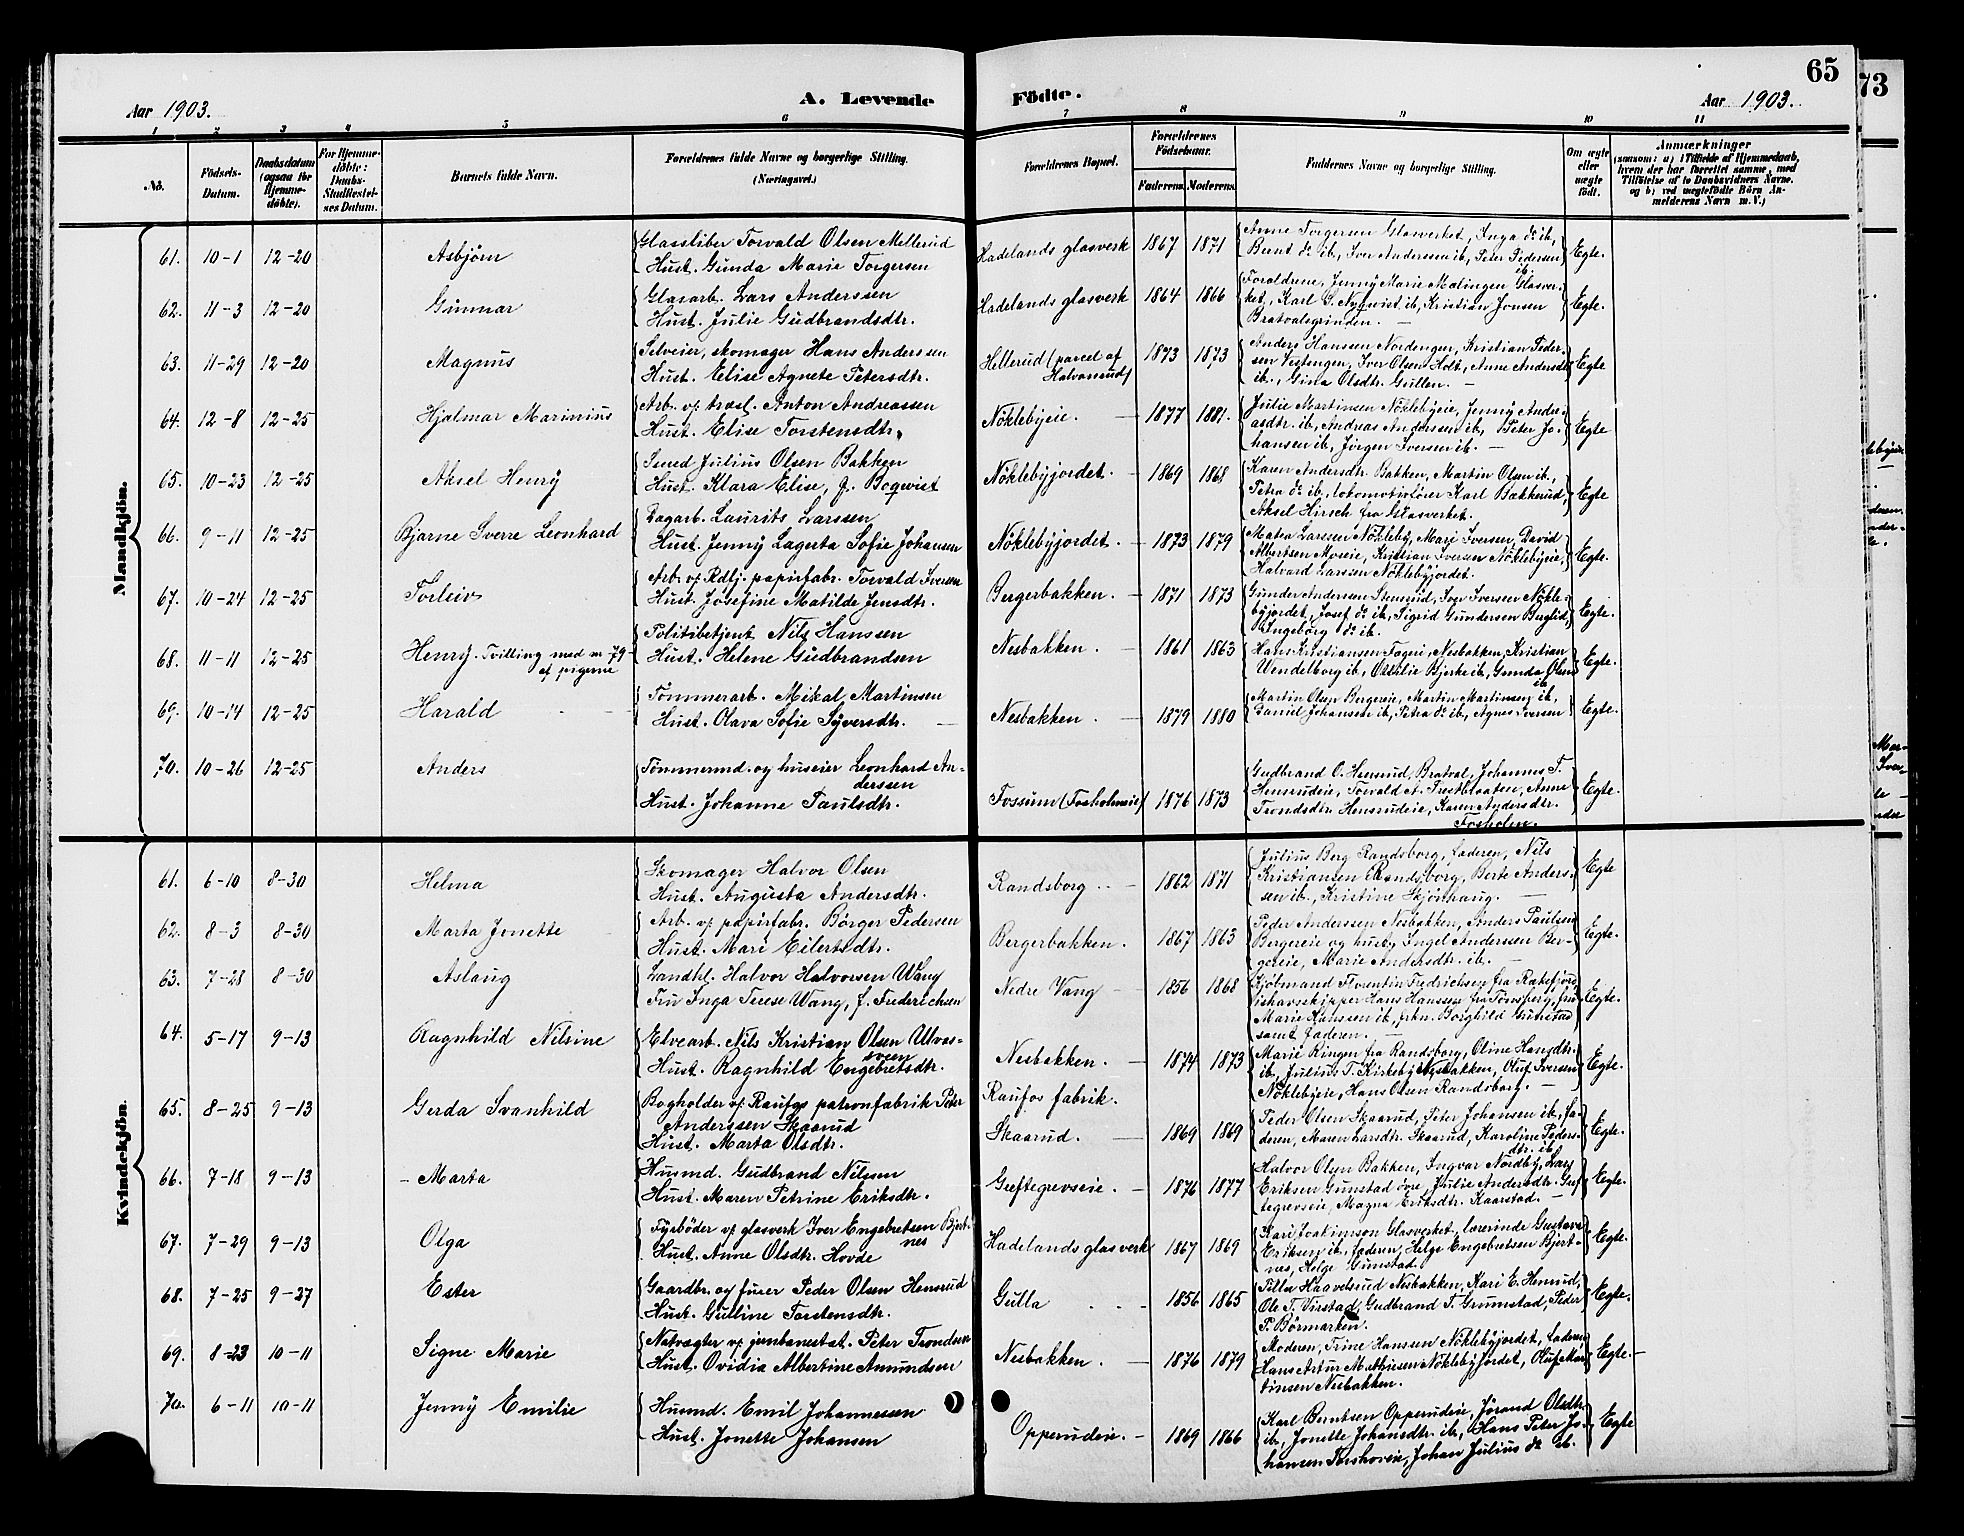 65
73
Aar 1903.
A. Levende
Födte.
Aar 1903.
1 2 3 4 5 6 7 8 9 10 11
No.
Födsels-
Datum.
Daabsdatum
(ogsaa for
Hjemme-
döbte).
For Hjemme-
döbte:
Daabs-
Stadfæstel-
ses Datum.
Barnets fulde Navn.
Forældrenes fulde Navne og borgerlige Stilling.
(Næringsvei.)
Forældrenes Bopæl.
Forældrenes
Födselsaar.
Faderens. Moderens.
Faddernes Navne og borgerlige Stilling.
Om ægte
eller
uægte
födt.
Anmærkninger
(saasom: a) i Tilfælde af Hjemmedaab,
hvem der har forrettet samme, med
Tilföielse af to Daabsvidners Navne,
og b) ved uægtefödte Börn An-
melderens Navn m. V.)
Mandkjön.
61. 10-1 12-20 Asbjørn
Glassliber Torvald Olsen Mellerud
Hust. Gunda Marie Torgersen
Hadelands glasverk 1867 1871
Anne Torgersen Glasverket, Inga do ib,
Bernt do ib, Iver Anderssen ib, Peter Pedersen
ib.
Egte.
62. 11-3 12-20 Gunnar
Glasarb. Lars Anderssen
Hust. Julie Gudbrandsdtr.
Hadelands glasverk 1864 1866
Forældrene, Jenny Marie Malingen Glasver-
ket, Karl G. Nyqvist ib, Kristian Jonsen
Bratvalsgrinden.
Egte.
63. 11-29 12-20 Magnus
Selveier, skomager Hans Anderssen
Hust. Elise Agnete Petersdtr.
Hellerud (parcel af
Halvorsrud) 1873 1873
Anders Hanssen Nordengen, Kristian Peder-
sen Vestengen, Iver Olsen Holt, Anne Andersdtr
ib., Gina Olsdtr. Gullen.
Egte
64. 12-8 12-25 Hjalmar Marinius
Arb. v/ træsl. Anton Andreassen
Hust. Elise Torstensdtr.
Nöklebyeie. 1877 1881.
Julie Martinsen Nöklebyeie, Jenny Andre-
asdtr. ib, Andreas Anderssen ib, Peter Jo-
hansen ib, Jörgen Iversen ib.
Egte
65. 10-23 12-25 Aksel Henry
Smed Julius Olsen Bakken
Hust. Klara Elise, f. Boqvist
Nöklebyjordet. 1869 1868
Karen Andersdtr. Bakken, Martin Olsen ib.,
Petra do ib., lokomotivförer Karl Bækkerud,
Aksel Hirsch fra Glasverket.
Egte
66. 9-11 12-25 Bjarne Sverre Leonhard
Dagarb. Laurits Larssen
Hust. Jenny Lagerta Sofie Johansen
Nöklebyjordet. 1873 1879
Matea Larssen Nökleby, Mari Iversen, David
Albertsen Moseie, Kristian Iversen Nöklebyeie,
Halvard Larssen Nöklebyjordet.
Egte.
67. 10-24 12-25 Torleiv
Arb. v/ Rdbj. papirfabr. Torvald Iversen
Hust. Josefine Matilde Jensdtr.
Bergerbakken. 1871 1873
Gunder Andersen Stensrud, Iver Iversen Nökle-
byjordet, Josef do ib, Sigrid Gundersen Berglid,
Ingeborg do ib.
Egte.
68. 11-11 12-25 Henry. Tvilling med nr 79
af pigerne
Politibetjent Nils Hanssen
Hust. Helene Gudbrandsen
Nesbakken. 1861 1863
Hans Kristiansen Fageri, Nesbakken, Kristian
Wendelborg ib, Ottilie Bjerke ib, Gunda Olsen
ib.
Egte.
69. 10-14 12-25 Harald
Tömmerarb. Mikal Martinsen
Hust. Olava Sofie Syversdtr.
Nesbakken. 1879 1880
Martin Olsen Bergereie, Martin Martinsen ib,
Daniel Johanssen ib, Petra do ib, Agnes Iversen
Egte.
70. 10-26 12-25 Anders
Tömmermd. og huseier Leonhard An-
derssen
Hust. Johanne Paulsdtr.
Fossum (Fosholmeie) 1876 1873
Gudbrand O. Hensrud, Bratval, Johannes T.
Hensrudeie, Torvald A. Anne
Trondsdtr. Hensrudeie, Karen Andersdtr.
Fosholm.
Egte.
Kvindekjön.
61. 6-10 8-30 Helma
Skomager Halvor Olsen
Hust. Augusta Andersdtr.
Randsborg 1862 1871
Julius Berg Randsborg, faderen, Nils
Kristiansen Randsborg, Berte Anders-
sen ib., Kristine Skjönhaug.
Egte
62. 8-3 8-30 Marta Jonette
Arb. v/ papirfabr. Börger Pedersen
Hust. Mari Eilertsdtr.
Bergerbakken. 1867 1863
Peder Anderssen Nesbakken, Anders Paulsen
Bergereie og hustru, Ingel Anderssen Ber-
gereie, Marie Andersdtr. ib.
Egte.
63. 7-28 8-30 Aslaug
Landhl. Halvor Halvorsen Wang
Fru Inga Terese Wang, f. Frederichsen
Nedre Vang 1856 1868
Kjöbmand Florentin Fredrichsen fra
ishavsskipper Hans Hanssen fra Tönsberg, fru
Marie Hanssen ib, frkn. Borghild Gunstad
samt faderen.
Egte.
64. 5-17 9-13 Ragnhild Nilsine
Elvearb. Nils Kristian Olsen Ulvos-
sven
Hust. Ragnhild Engebretsdtr.
Nesbakken. 1874 1873
Marie Ringen fra Randsborg, Oline Hansdtr.
ib, Julius T. Kirkeby Nesbakken, Oluf Iversen
Nöklebyeie, Hans Olsen Randsborg.
Egte.
65. 8-25 9-13 Gerda Svanhild
Bogholder v/ Raufos patronfabrik Peter
Anderssen Skaarud
Hust. Marta Olsdtr.
Raufos fabrik.
Skaarud. 1869 1869
Peder Olsen Skaarud, Peter Johansen ib, fa-
deren, Maren Larsdtr. Skaarud, Karoline Peders-
dtr. ib.
Egte.
66. 7-18 9-13 Marta
Husmd. Gudbrand Nilsen
Hust. Maren Petrine Eriksdtr.
Gæftegrevseie. 1876 1877
Halvor Olsen Bakken, Ingvar Nordby, Lars
Eriksen Gunstad övre, Julie Andersdtr. Gæf-
tegrevseie, Magna Eriksdtr. Kaarstad.
Egte.
67. 7-29 9-13 Olga
Fyrböder v/ glasverk Iver Engebretsen Bjert-
nes
Hust. Anne Olsdtr. Hovde
Hadelands glasverk 1867 1869
Kari Joakimson Glasverket, lærerinde Gustava
Eriksen ib, faderen, Helge Engebretsen Bjert-
nes, Helge Gunstad.
Egte.
68. 7-25 9-27 Ester
Gaardbr. og furer Peder Olsen Hensrud
Hust. Gulline Torstensdtr.
Gulla 1856 1865
Pilla Haavelsrud Nesbakken, Kari E. Hensrud,
Ole T. Virstad, Gudbrand T. Grumstad, Peder
P. Börmarken.
Egte.
69. 8-23 10-11 Signe Marie
Natvagter v/ jernbanestat. Peter Trondsen
Hust. Ovidia Albertine Amundsen
Nesbakken. 1876 1879
Moderen, Trine Hansen Nöklebyjordet, faderen
Hans Artur Mathiesen Nöklebyjordet, Oluf Mar-
tinsen Nesbakken.
Egte.
70. 6-11 10-11 Jenny Emilie
Husmd. Emil Johannessen
Hust. Jonette Johansen
Opperudeie. 1869 1866
Karl Berntsen Opperudeie, Jörand Olsdtr.
ib, Jonette Johansdtr. ib, Hans Peter Jo-
hansen Torshoveie, Johan Julius do ib.
Egte